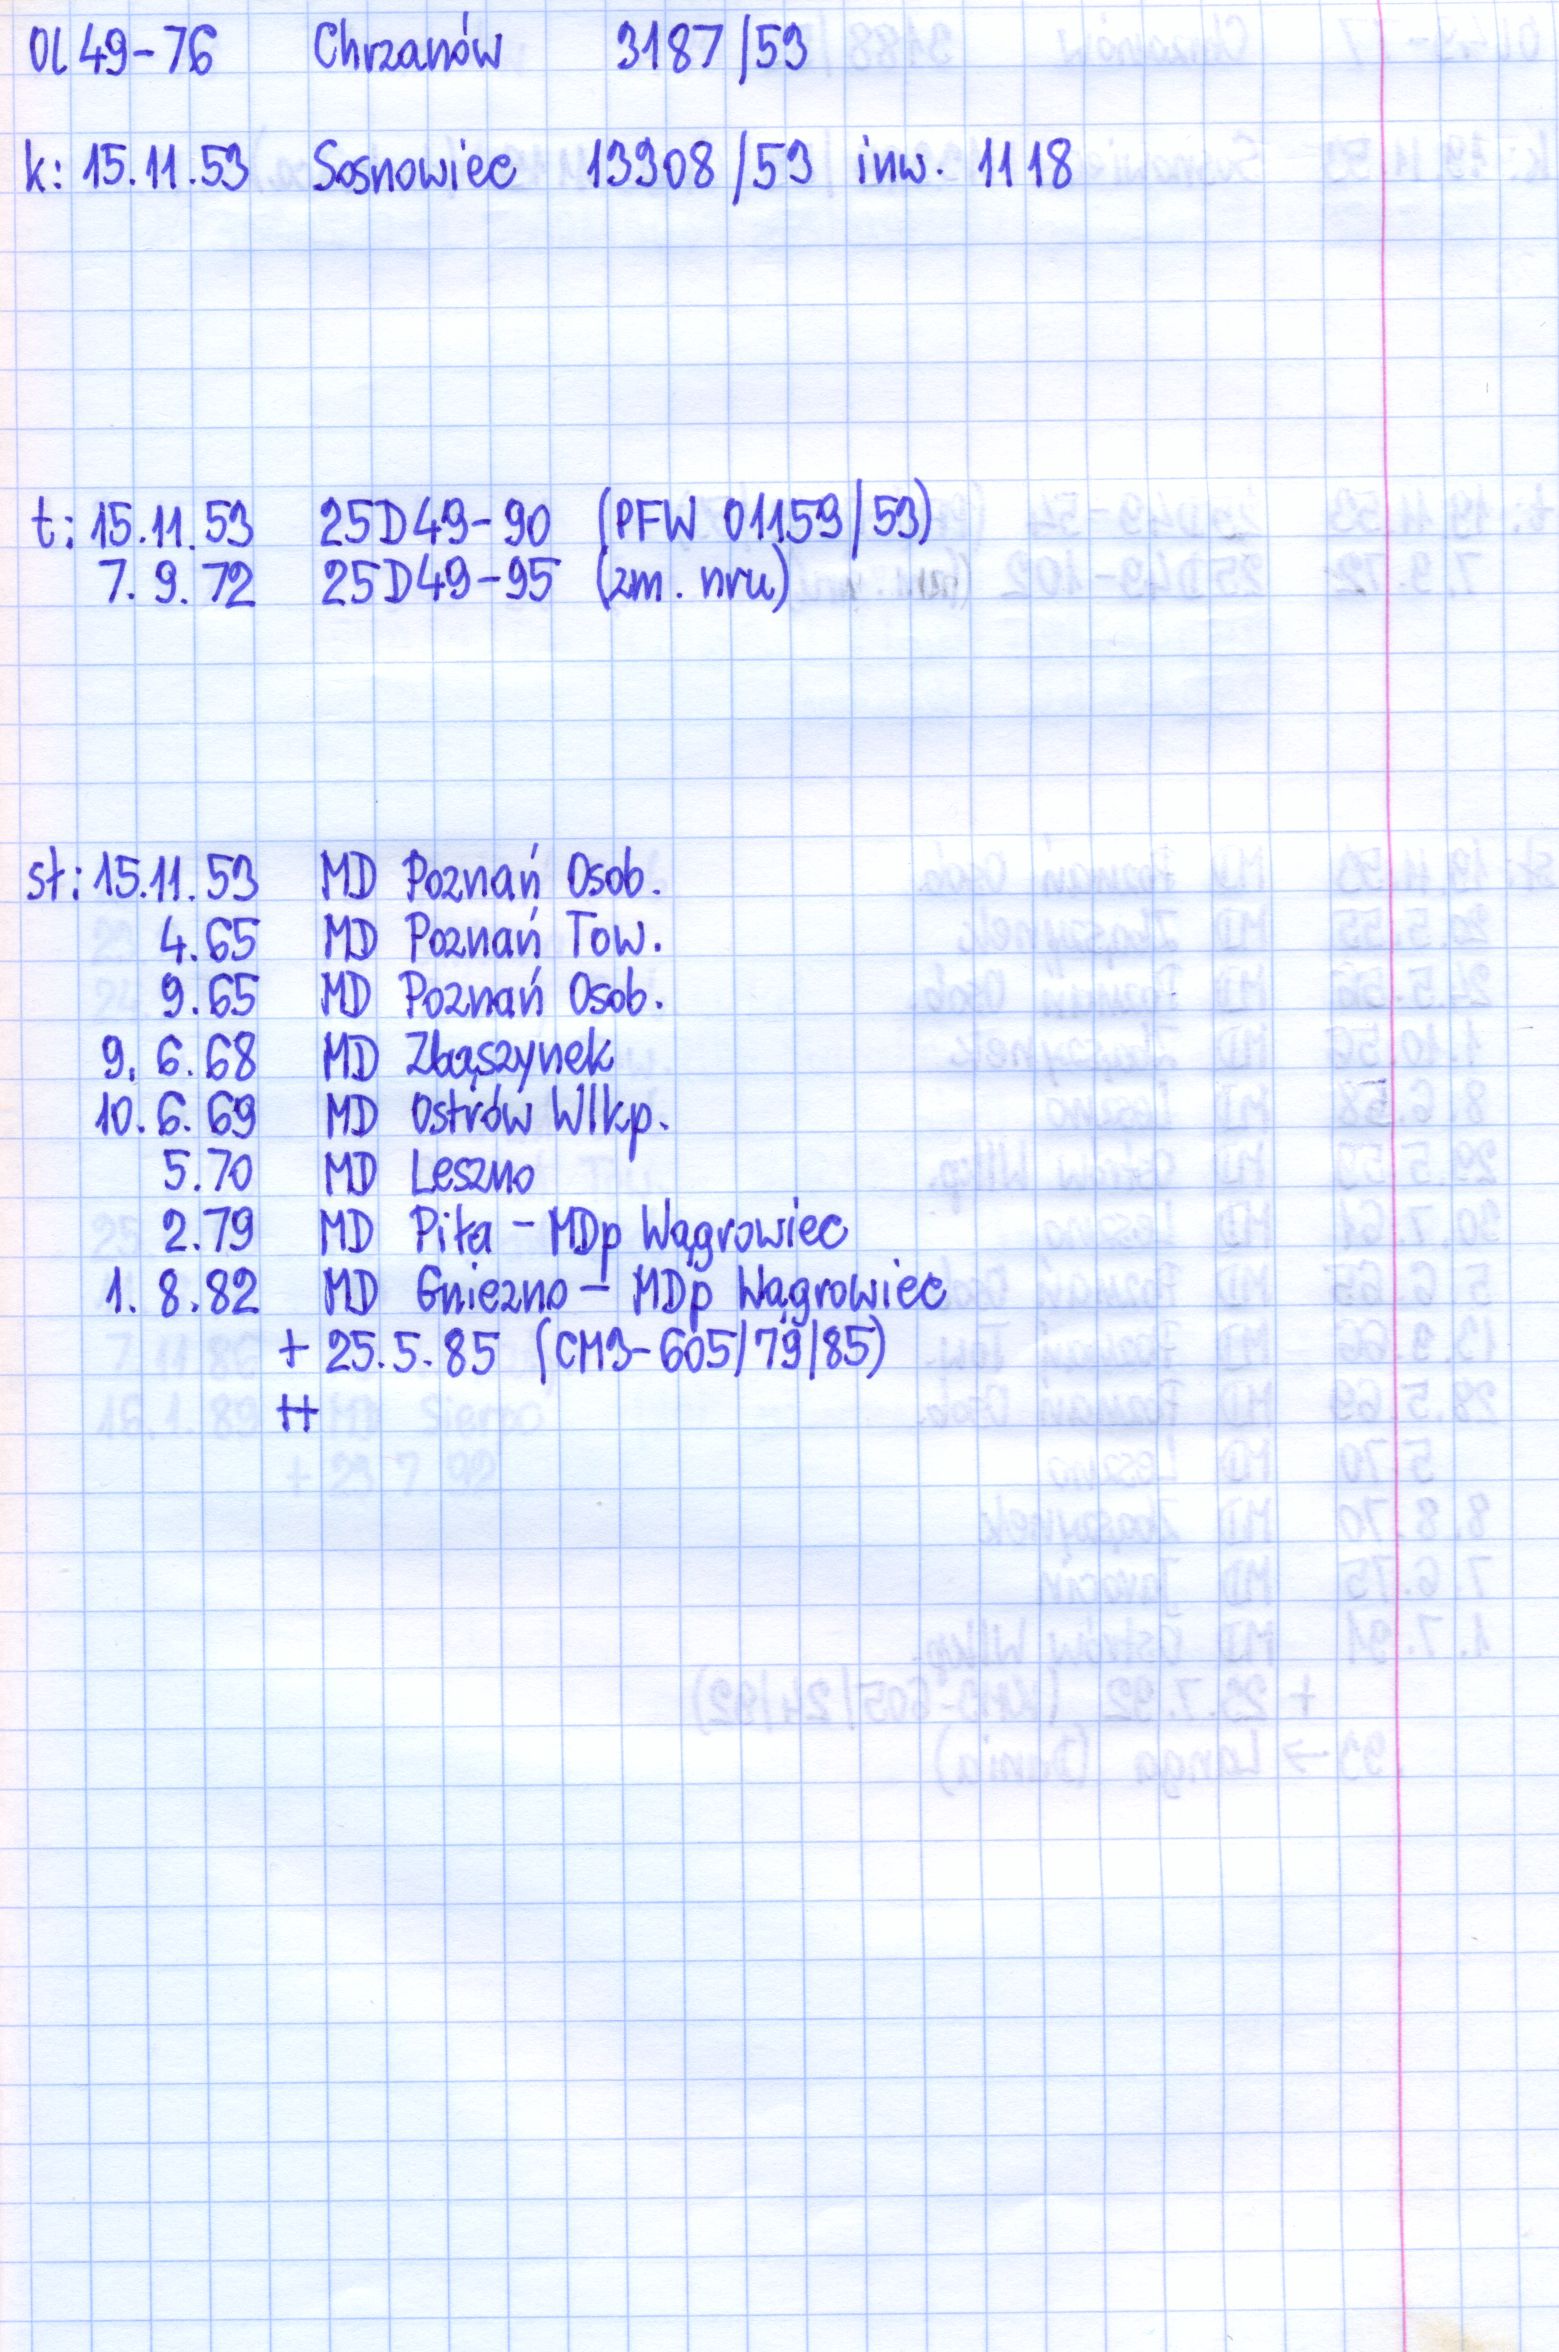 Ol 49-76 Chrzanów 3187/53
k: 15.11.53 Sosnowiec 13908/53 inw. 1118
t: 15.11.53 25D49-90 (PFW 01159/53)
7.9.72 25D49-95 (zm. nru)
st: 15.11.53 MD Poznań Osob.
4.65 MD Poznań Tow.
9.65 MD Poznań Osob.
9.6.68 MD Zbąszynek
10.6.69 MD Ostrów Wlkp.
5.70 MD Leszno
2.79 MD Piła - MDp Wągrowiec
1.8.82 MD Gniezno - MDp Wągrowiec
+ 25.5.85 (CM3-605/79/85)
++